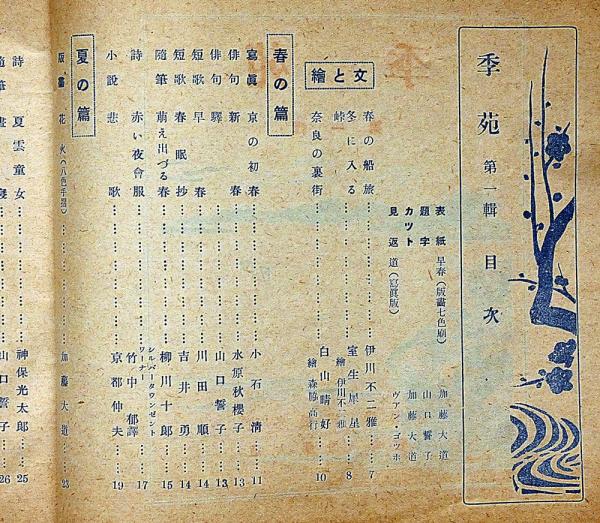 季苑 第一輯 目次
表紙 早春（版畫七色刷） 加藤大道
題字 山口誓子
カット 加藤大道
見返 道（寫眞版） ヴアン・ゴッホ
文と繪
春の船旅 伊川不二雅 7
冬に入る 室生犀星 8
峠 繪 伊川不二雅
奈良の裏街 白山晴好 10
繪 森脇高行
春の篇
寫眞 京の初春 小石淸 11
俳句 新春 水原秋櫻子 13
俳句 驛 山口誓子 13
短歌 早春 川田順 14
短歌 春眠抄 吉井勇 14
隨筆 萠え出づる春 柳川十郎 15
シルバータウンゼント
ワーナー
詩 赤い夜會服 竹中郁譯 17
小説 悲歌 京都伸夫 19
夏の篇
版畫 花火（八色手摺） 加藤大道 23
詩 夏雲童女 神保光太郎 25
隨筆 晝寢 山口誓子 26